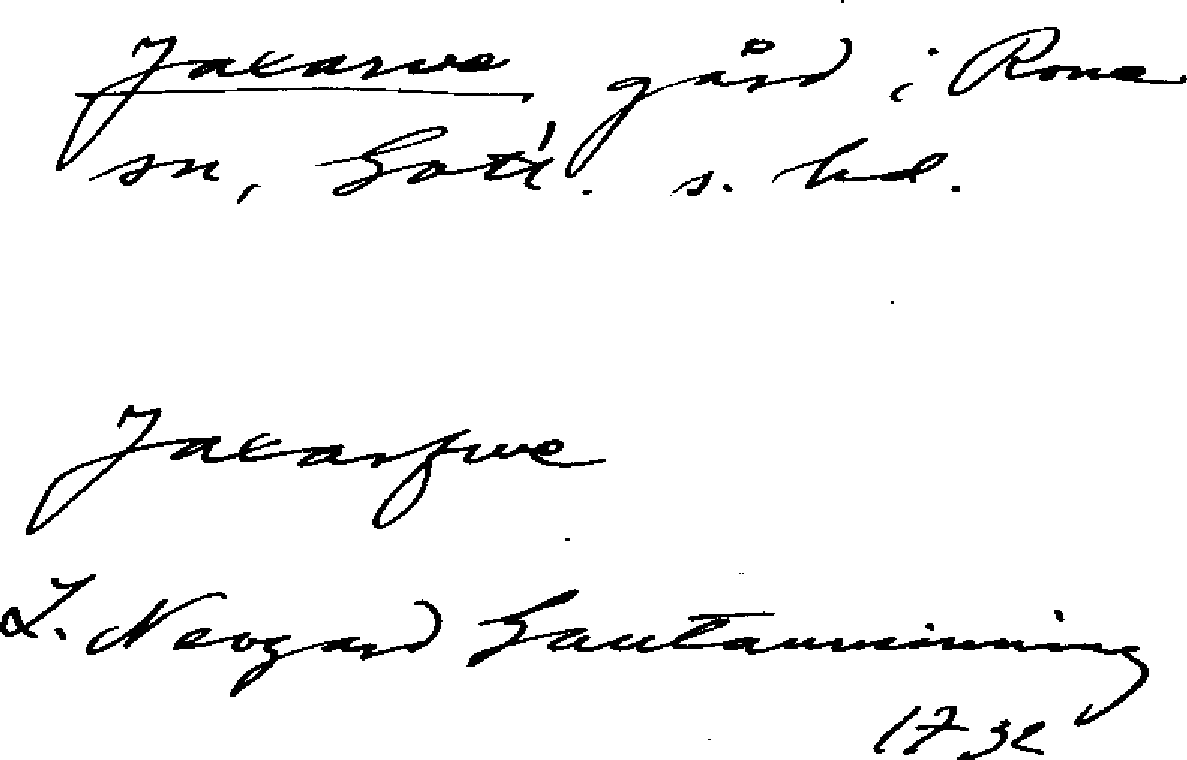 Jacarve gård i Rone
sn, Gotl. s. hd.
Jacarfwe
L. Neogard Gautauminning
1732